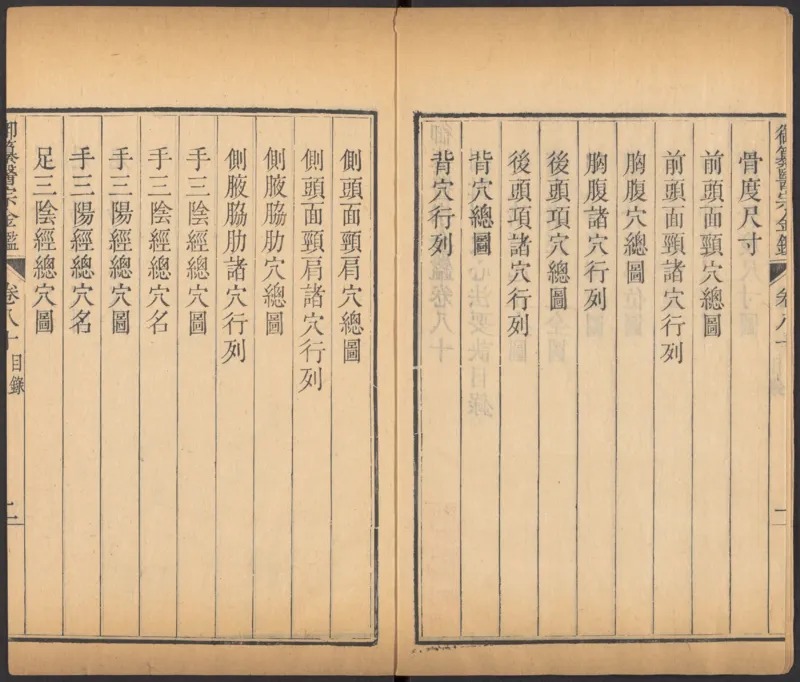 御纂醫宗金鑑 卷八十 目錄 一
骨度尺寸
前頭面頸穴總圖
前頭面頸諸穴行列
胸腹穴總圖
胸腹諸穴行列
後頭項穴總圖
後頭項諸穴行列
背穴總圖
背穴行列
側頭面頸肩穴總圖
側頭面頸肩諸穴行列
側腋脇肋穴總圖
側腋脇肋諸穴行列
手三陰經總穴圖
手三陰經總穴名
手三陽經總穴圖
手三陽經總穴名
足三陰經總穴圖
御纂醫宗金鑑 卷八十 目錄 二